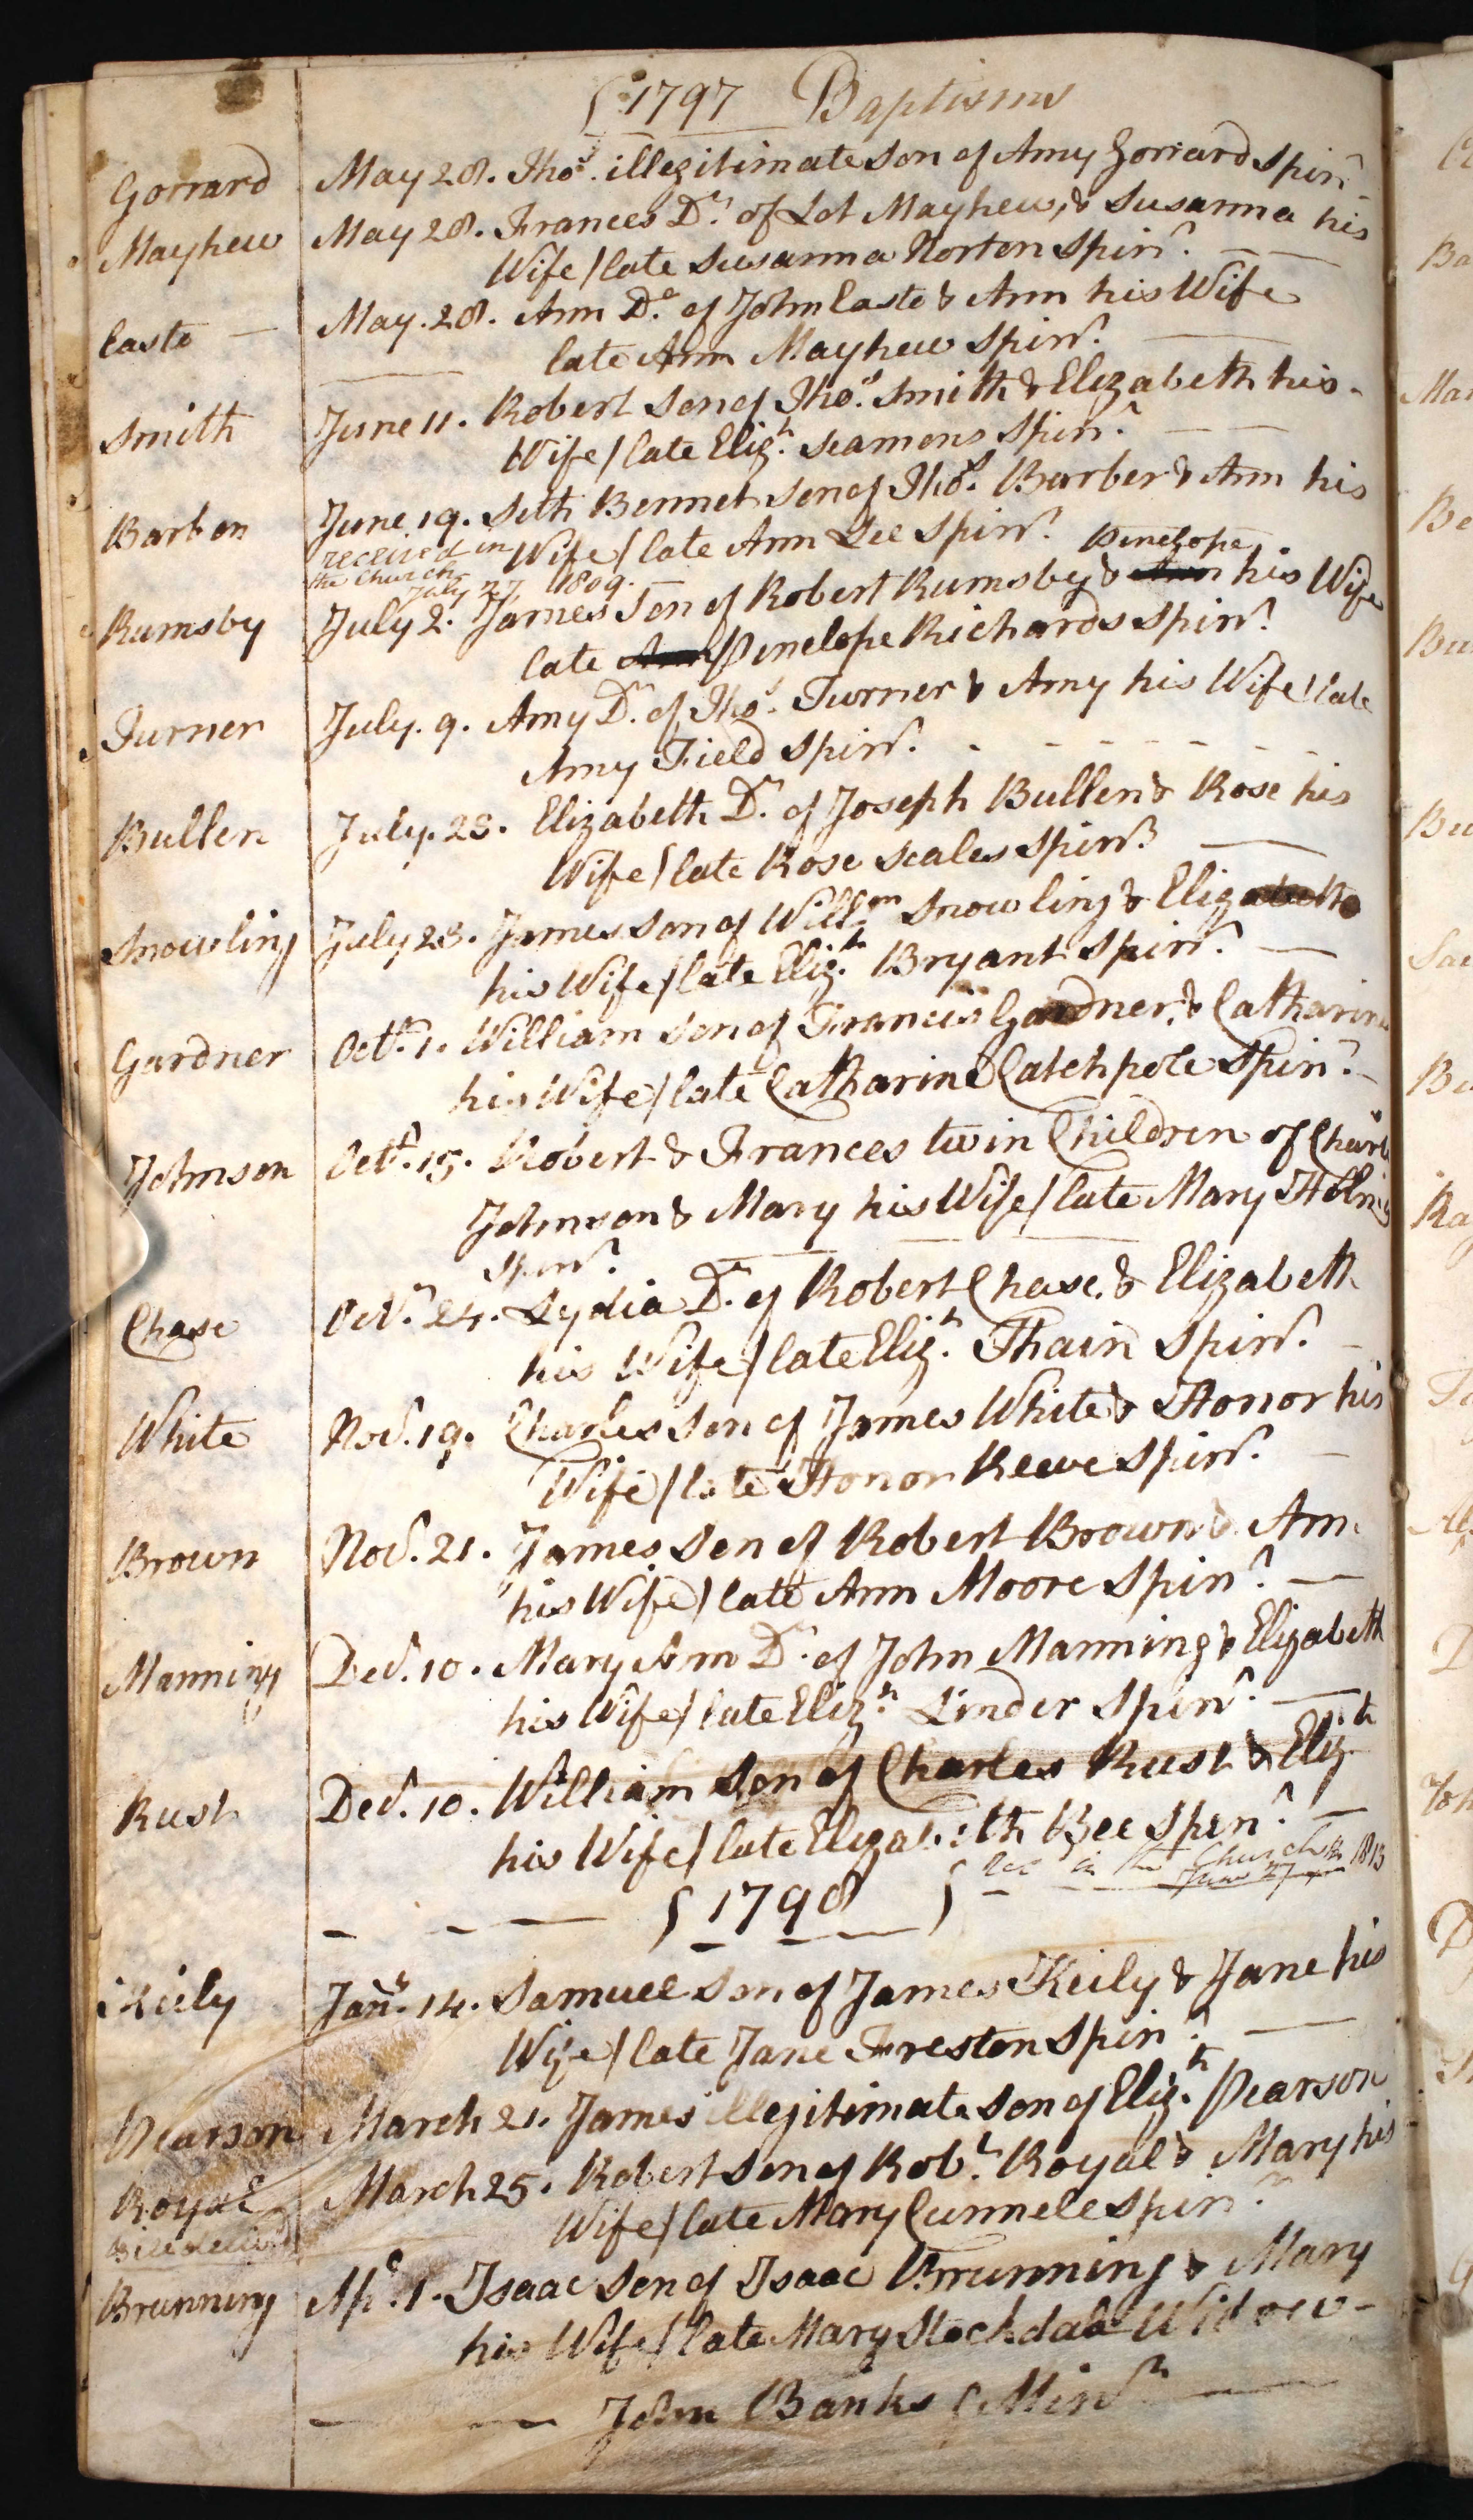 1797 Baptisms
Gorrard May 28. Thos. illegitimate son of Amy Gorrard Spinr.
Mayhew May 28. Frances Dr. of Lot Mayhew, & Susanna his
Wife / late Susanna Norton Spinr.
Caste May. 28. Ann Dr. of John Caste & Ann his Wife
late Ann Mayhew Spinr.
Smith June 11. Robert Son of Thos. Smith & Elizabeth his
Wife / late Elizh. Seamons Spinr.
Barber June 19. Seth Bennet son of Thos. Barber & Ann his
received in Wife / late Ann Lee Spinr. Penelope
the Church
July 27, 1809.
Rumsby July 2. James Son of Robert Rumsby & Ann his Wife
late Ann Penelope Richards Spinr.
Turner July. 9. Amy Dr. of Thos. Turner & Amy his Wife / late
Amy Field Spinr.
Bullen July. 23. Elizabeth Dr. of Joseph Bullen & Rose his
Wife / late Rose Scales Spinr.
Snowling July 23. James son of Willm. Snowling & Elizabeth
his Wife / late Elizh. Bryant Spinr.
Gardner Octr. 1. William Son of Francis Gardner, & Catharine
his Wife / late Catharine Catchpole Spinr.
Johnson Octr. 15. Robert & Frances twin Children of
Johnson & Mary his Wife / late Mary
Spinr.
Chase Octr. 24. Lydia Dr. of Robert Chase, & Elizabeth
his Wife / late Elizh. Thain Spinr.
White Novr. 19. Charles Son of James White & Honor his
Wife / late Honor Reeve Spinr.
Brown Novr. 21. James Son of Robert Brown & Ann
his Wife / late Ann Moore Spinr.
Manning Decr. 10. Mary Ann Dr. of John Manning & Elizabeth
his Wife / late Elizh. Linder Spinr.
Rush Decr. 10. William Son of Charles Rush & Elizh
his Wife / late Elizabeth Bee Spinr.
1798 Rec in the Church June 27 1813
Keily Janry. 14. Samuel Son of James Keily & Jane his
Wife / late Jane Freston Spinr.
Pearson March 21. James illegitimate Son of Elizh. Pearson
Royal March 25. Robert Son of Robt. Royal & Mary his
Wife / late Mary Cunnele Spinr.
Brunning Apl. 1. Isaac Son of Isaac Brunning & Mary
his Wife / late Mary Stockdale Widow
John Banks Minr.